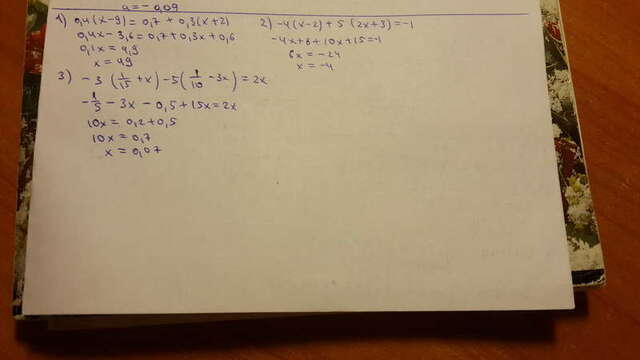 a = -0,09
1) 0,4(x-9) = 0,7 + 0,3(x+2)
0,4x - 3,6 = 0,7 + 0,3x + 0,6
0,1x = 4,9
x = 49
2) -4(x-2) + 5(2x+3) = -1
-4x + 8 + 10x + 15 = -1
6x = -24
x = -4
3) -3(1/15 + x) - 5(1/10 - 3x) = 2x
-1/5 - 3x - 0,5 + 15x = 2x
10x = 0,2 + 0,5
10x = 0,7
x = 0,07